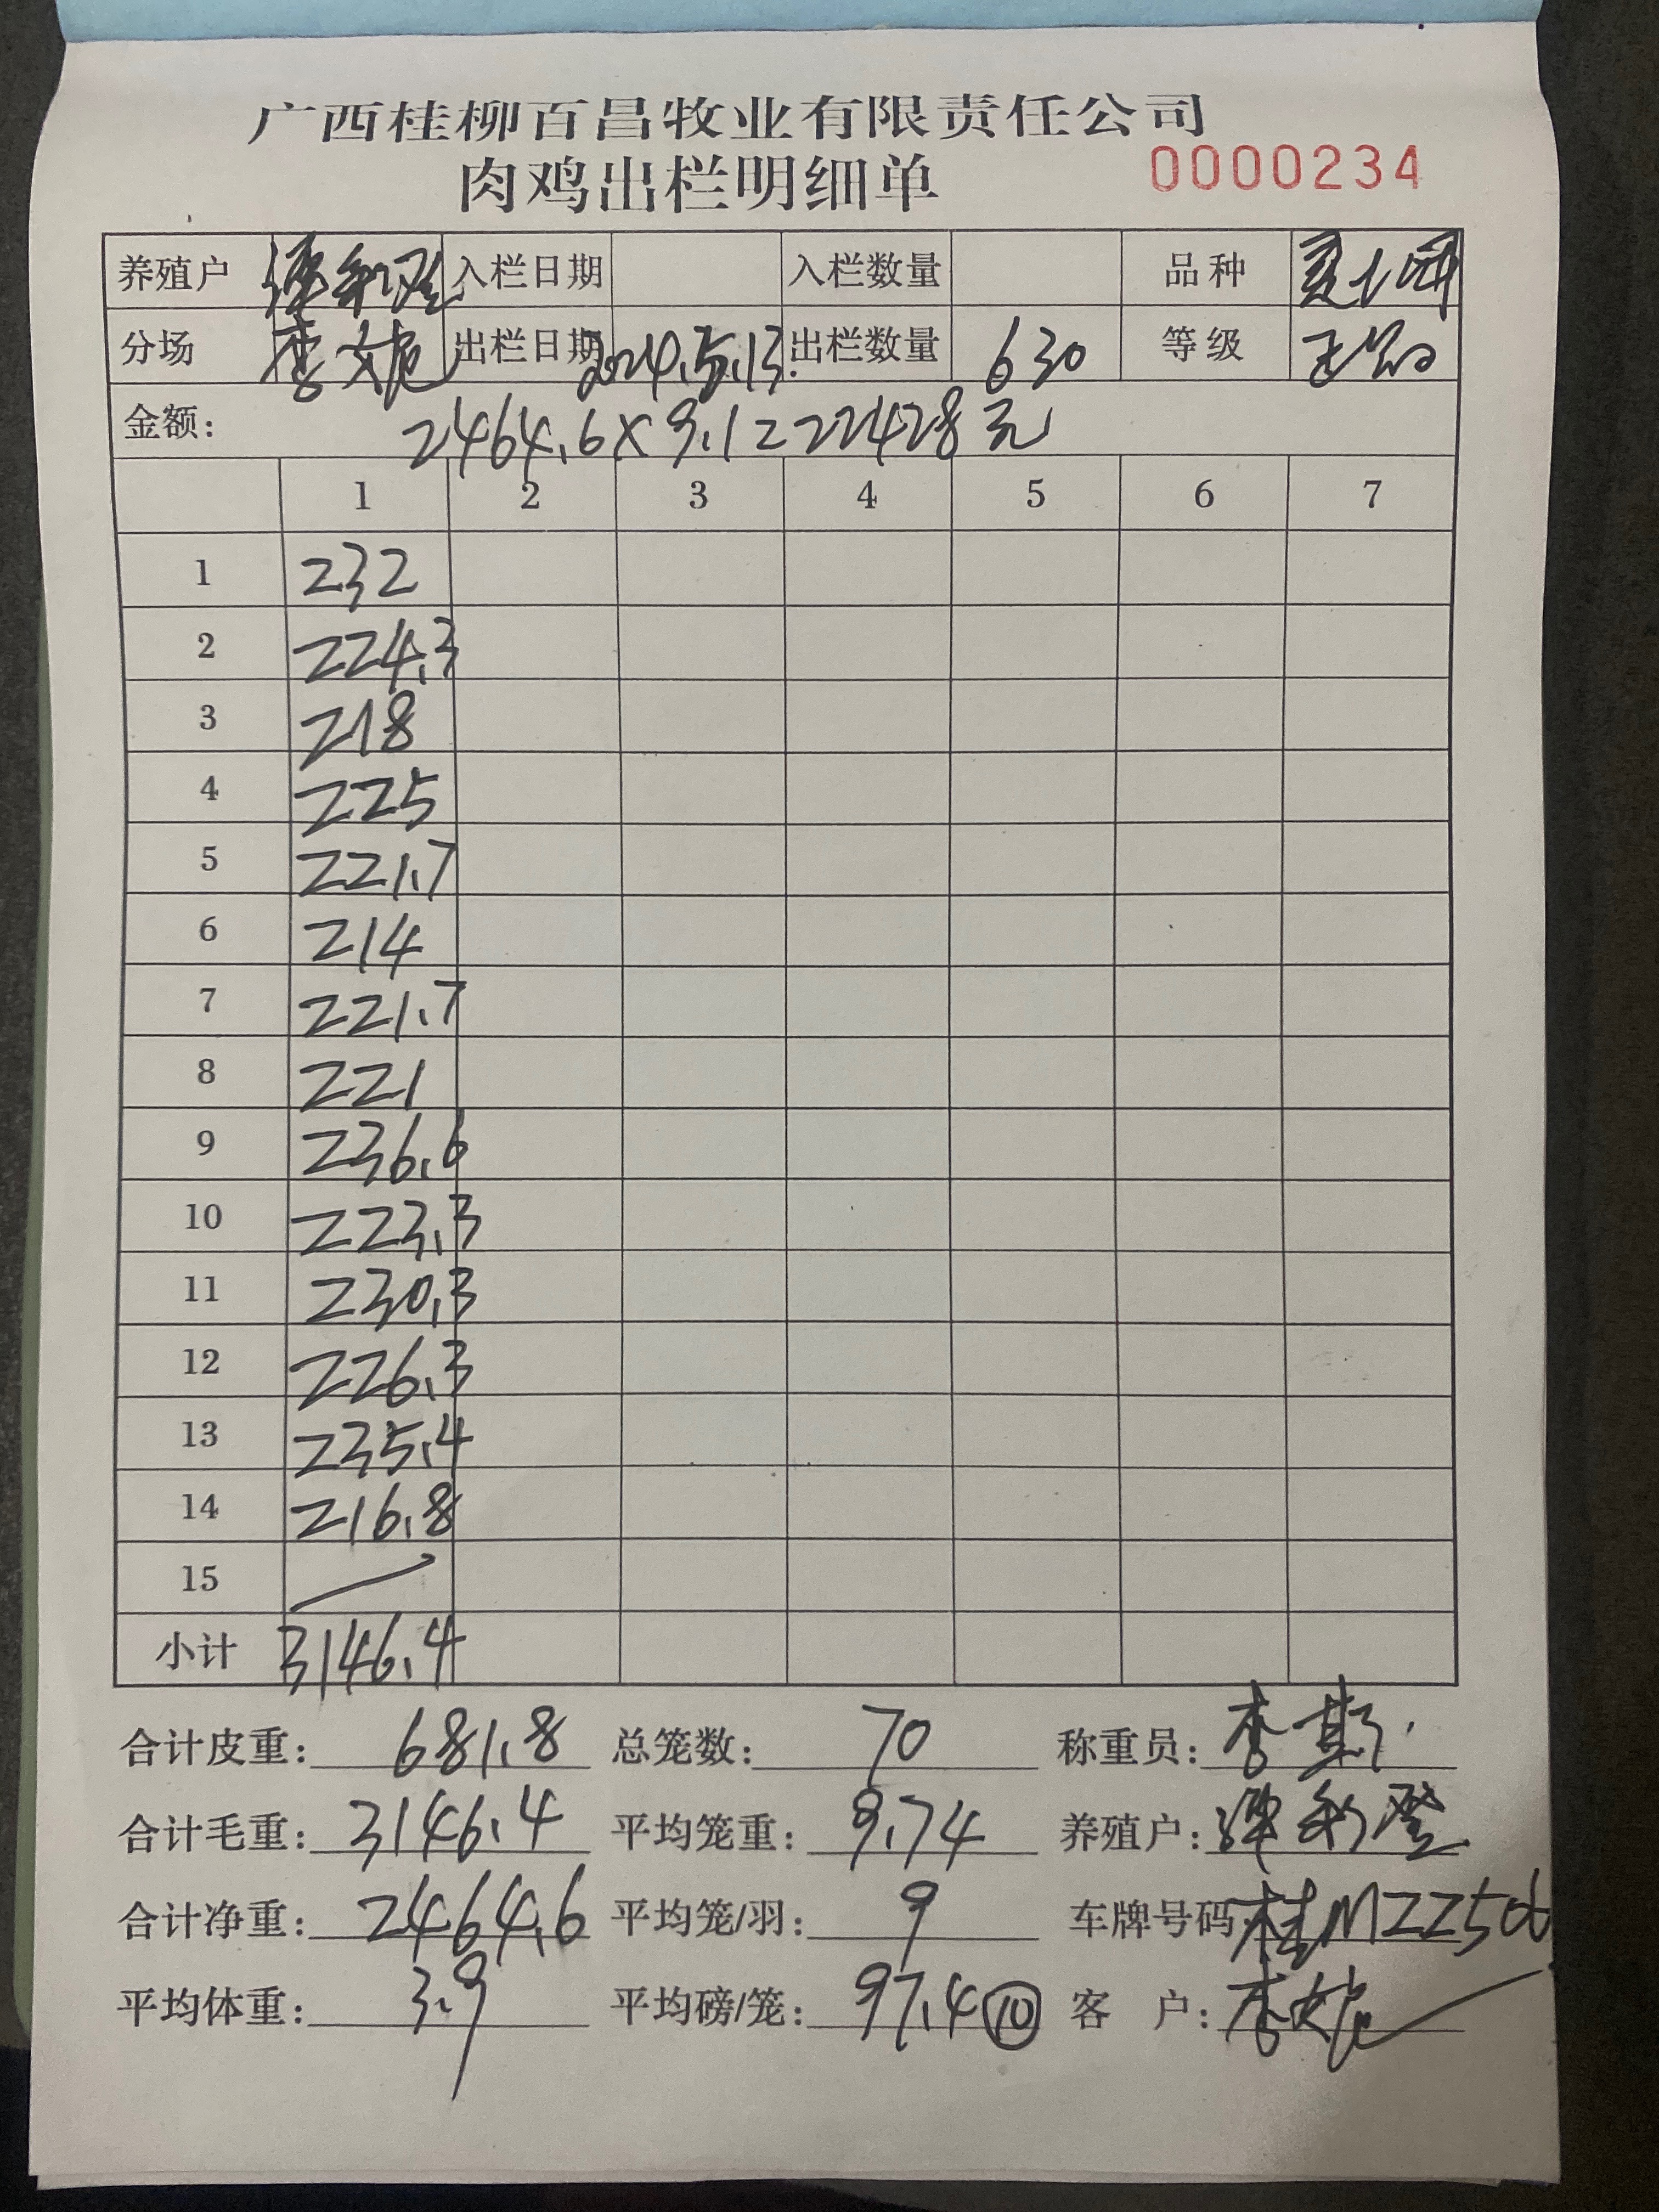 广西桂柳百昌牧业有限责任公司
肉鸡出栏明细单 0000234
养殖户 入栏日期 入栏数量 品种
分场 李 出栏日期 2024.5.13. 出栏数量 630 等级
金额: 2464.6×9.1=22428元
1 2 3 4 5 6 7
1 232
2 224.3
3 218
4 225
5 221.7
6 214
7 221.7
8 221
9 236.6
10 223.3
11 230.3
12 226.3
13 235.4
14 216.8
15
小计 3146.4
合计皮重: 681.8 总笼数: 70 称重员: 李斯
合计毛重: 3146.4 平均笼重: 9.74 养殖户:
合计净重: 2464.6 平均笼/羽: 9 车牌号码 桂MZZ50
平均体重: 3.9 平均磅/笼: 97.4 ⑩ 客 户: 李